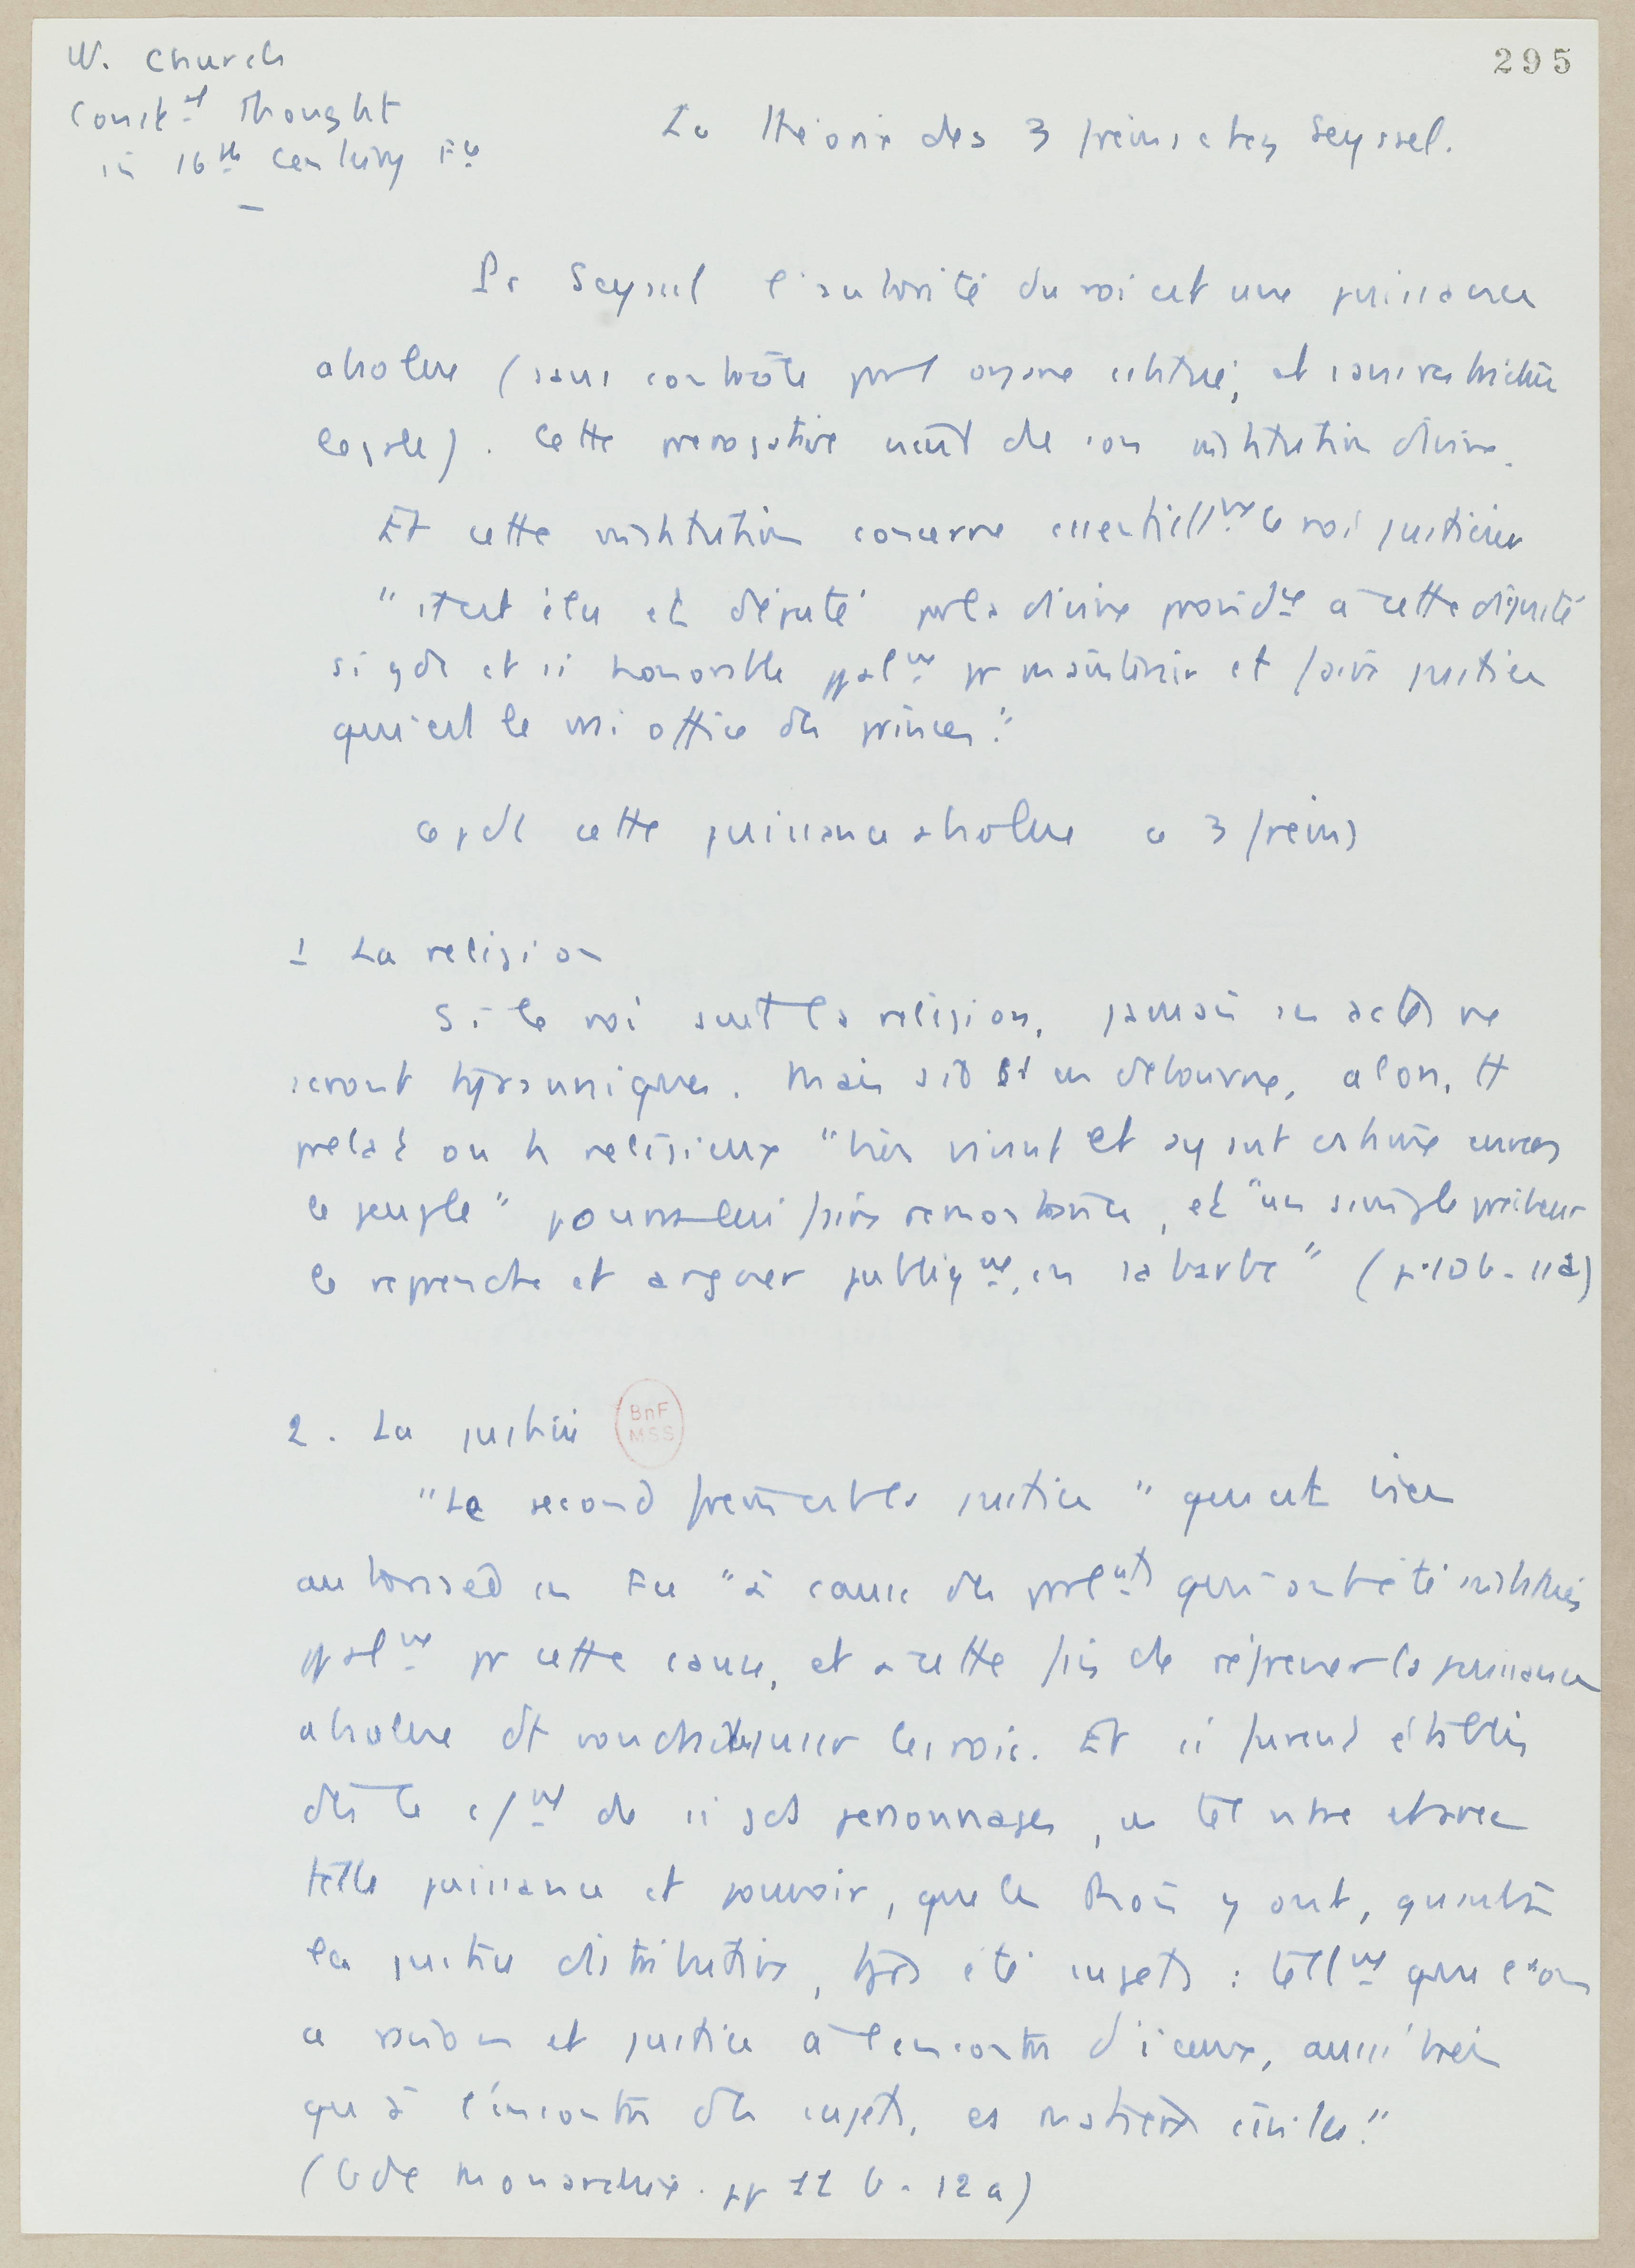 W. Church
Const.al Thought
in 16th century Fce
295
La théorie des 3 freins chez Seyssel.
Pr Seyssel l'autorité du roi est une puissance
absolue (sans contrôle par l organe institué, et sans restriction
légale). Cette prérogative vient de son institution divine.
Et cette institution concerne essentiellmt le roi justicier
"étant élu et député par la divine providce à cette dignité
si gde et si honorable ppalmt pr maintenir et faire justice
qui est le vrai office des princes."
Cepdt cette puissance absolue a 3 freins
1 La religion
Si le roi suit la religion, jamais ses actes ne
seront tyranniques. Mais s'il s'en détourne, alors, tt
prélat ou tt religieux "bien vivant et ayant estime envers
le peuple" pourra lui faire remontrance, et "un simple prêcheur
le reprendre et arguer publiqmt, en sa barbe" (p. 10b-11a)
2. La justice
"Le second frein est la justice" qui est bien
autorisée en Fce "à cause des parlmts qui ont été institués
ppalmt pr cette cause, et à cette fin de refréner la puissance
absolue dt voudraient user les rois. Et si furent établis
dès le cft de si gds personnages, en tel nbre et avec
telle puissance et pouvoir, que les Rois y ont, quant à
la justice distributive, tjrs été sujets : tellmt que l'on
a raison et justice à l'encontre d'iceux, aussi bien
qu'à l'encontre des sujets, es matières civiles."
(Gde Monarchie. pp 11 b - 12a)
BnF
MSS